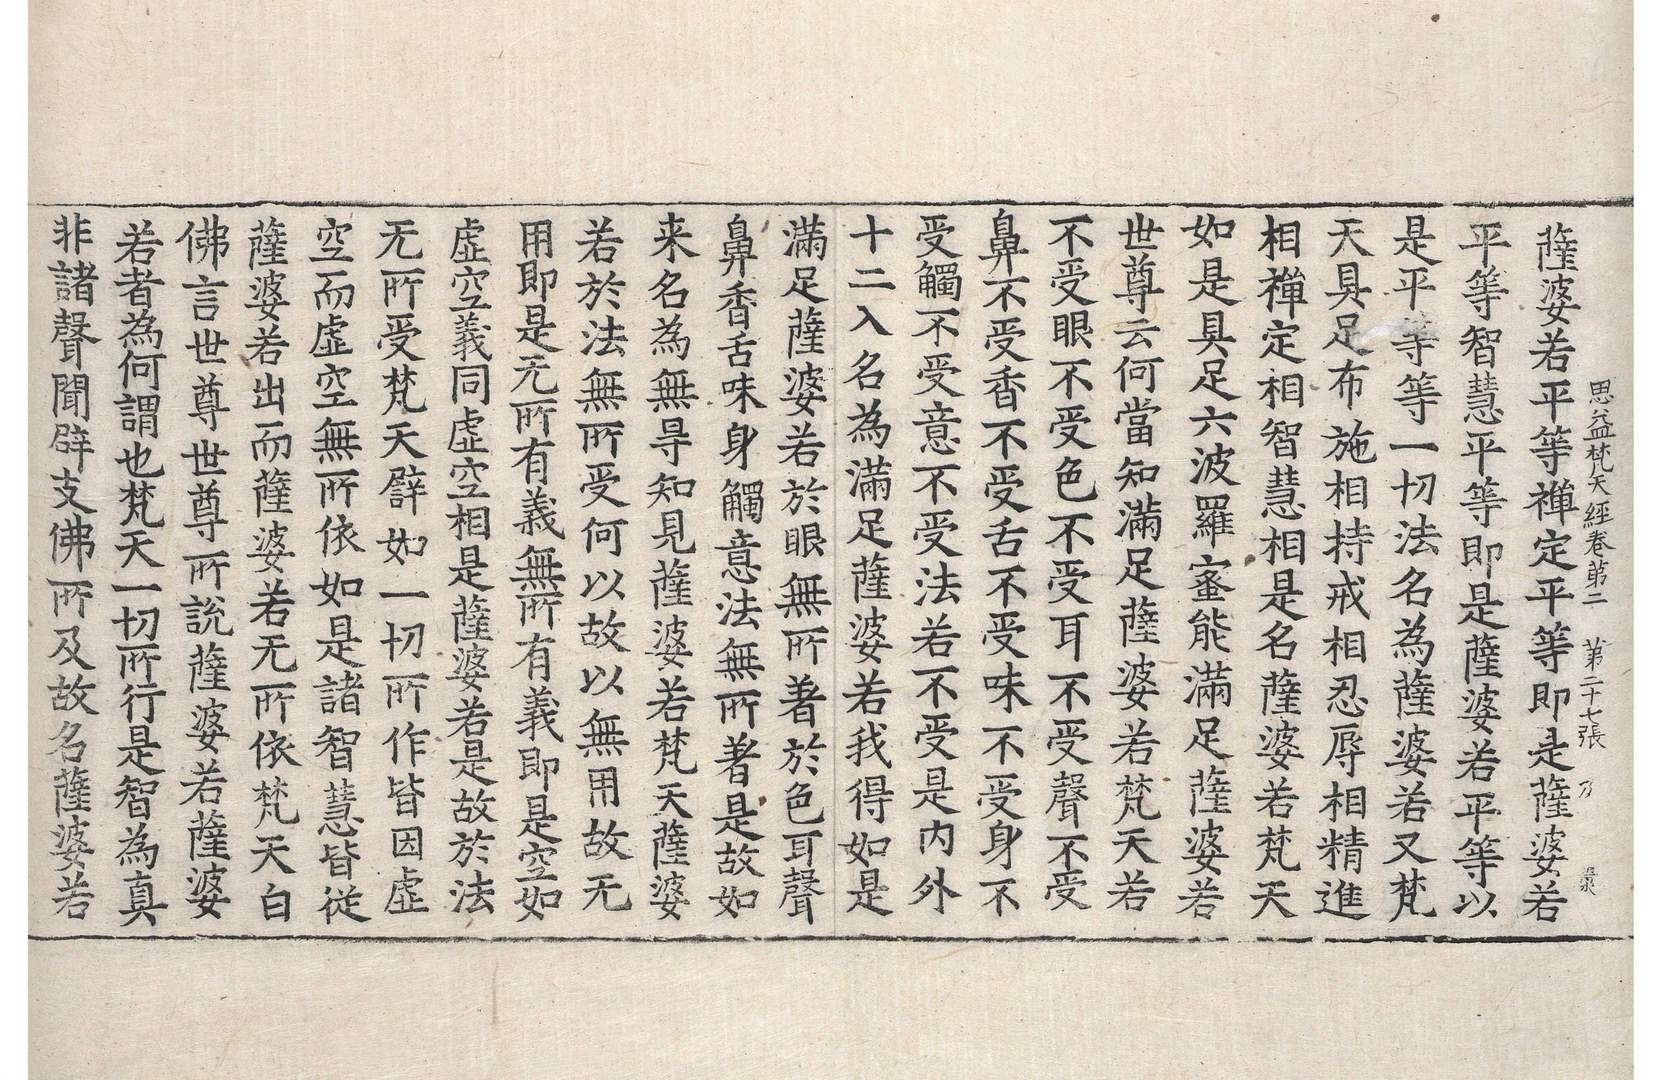 思益梵天經卷第二 第二十七張 乃
薩婆若平等禪定平等即是薩婆若
平等智慧平等即是薩婆若平等以
是平等等一切法名為薩婆若又梵
天具足布施相持戒相忍辱相精進
相禪定相智慧相是名薩婆若梵天
如是具足六波羅蜜能滿足薩婆若
世尊云何當知滿足薩婆若梵天若
不受眼不受色不受耳不受聲不受
鼻不受香不受舌不受味不受身不
受觸不受意不受法若不受是内外
十二入名為滿足薩婆若我得如是
滿足薩婆若於眼無所著於色耳聲
鼻香舌味身觸意法無所著是故如
来名為無㝵知見薩婆若梵天薩婆
若於法無所受何以故以無用故无
用即是无所有義無所有義即是空如
虛空義同虛空相是薩婆若是故於法
无所受梵天譬如一切所作皆因虛
空而虛空無所依如是諸智慧皆從
薩婆若出而薩婆若无所依梵天白
佛言世尊世尊所說薩婆若薩婆
若者為何謂也梵天一切所行是智為真
非諸聲聞辟支佛所及故名薩婆若